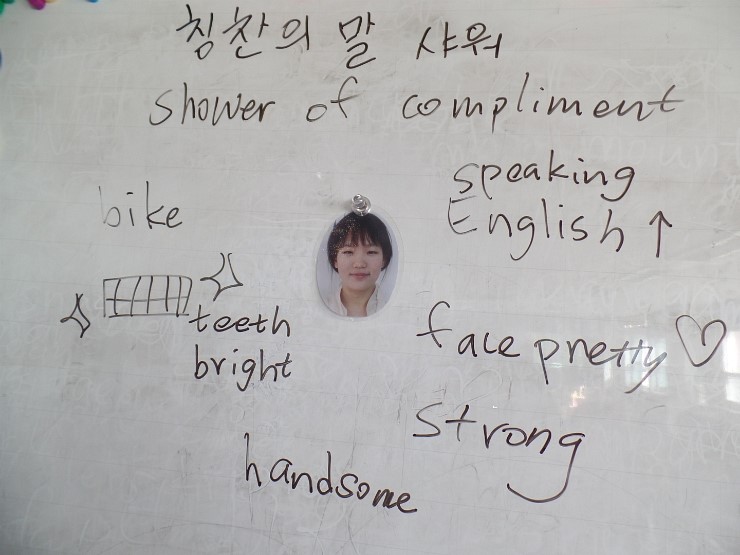 칭찬의 말 샤워
shower of compliment
speaking
English ↑
bike
teeth
bright
face pretty ♡
strong
handsome